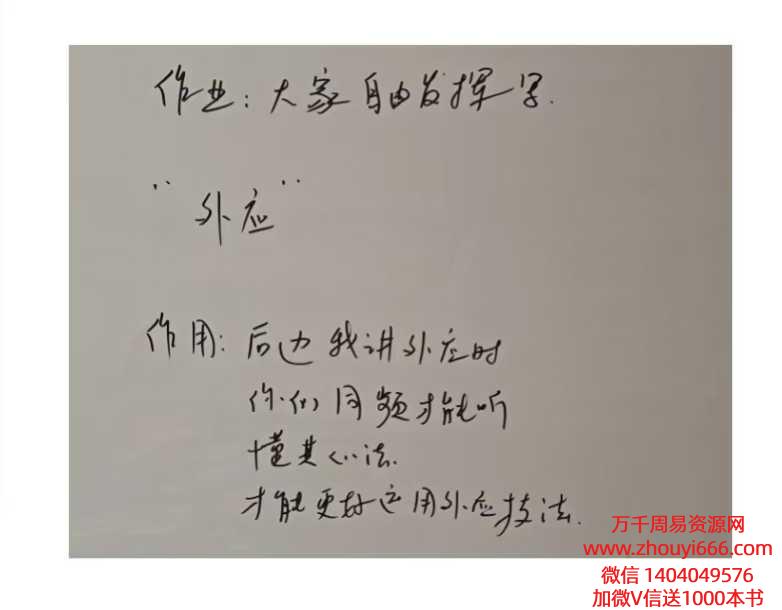 作业：大家自由发挥写.
"外应"
作用：后边我讲外应时
你们同频才能听
懂其心法.
才能更好运用外应技法.
万千周易资源网
www.zhouyi666.com
微信 1404049576
加微V信送1000本书